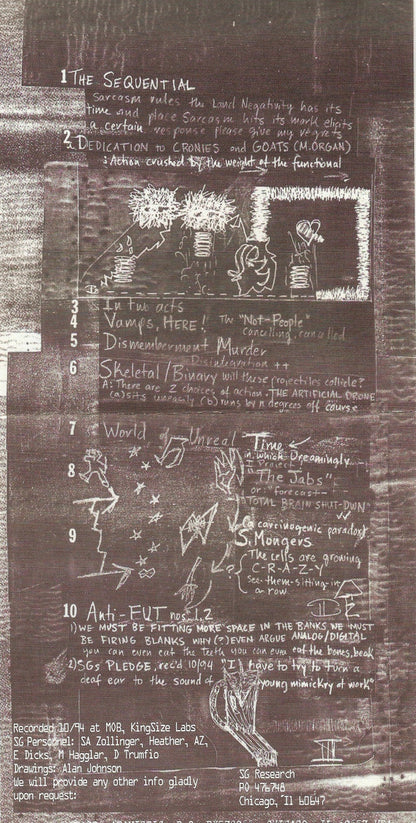 1 THE SEQUENTIAL
Sarcasm rules the Land Negativity has its
time and place Sarcasm hits its mark elicits
a certain response please give my regrets
2 DEDICATION to CRONIES and GOATS (M.ORGAN)
: Action crushed by the weight of the functional
3 In two acts
4 Vamps, HERE! The "Not-People"
cancelling, cancelled
5 Dismemberment Murder
Disintegration ++
6 Skeletal/Binary will these projectiles collide?
A: There are 2 choices of action. THE ARTIFICIAL DRONE
(a) sits uneasily (b) runs by n degrees off course
7 World / Unreal Time
in which Dreamingly
I Project
8 "The Jabs"
or "forecast"
TOTAL BRAIN SHUT-DWN
a carcinogenic paradox
9 S. Mongers
The cells are growing
C-R-A-Z-Y
see-them-sitting-in
a row
10 Anti-FUT nos. 1,2
1) WE MUST BE FITTING MORE SPACE IN THE BANKS WE MUST
BE FIRING BLANKS WHY (?) EVEN ARGUE ANALOG/DIGITAL
you can even eat the teeth you can even eat the bones, beak
2) SGs PLEDGE, rec'd 10/94 "I have to try to turn a
deaf ear to the sound of
young mimickry at work"
II
III
Recorded 10/94 at MOB, KingSize Labs
SG Personnel: SA Zollinger, Heather, AZ,
E Dicks, M Hagglar, D Trumfio
Drawings: Alan Johnson
We will provide any other info gladly
upon request:
SG Research
PO 476748
Chicago, Il 60647